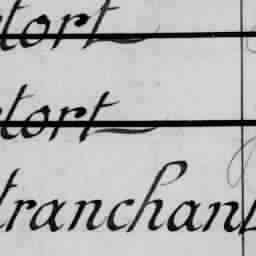 tort
tort
tranchant